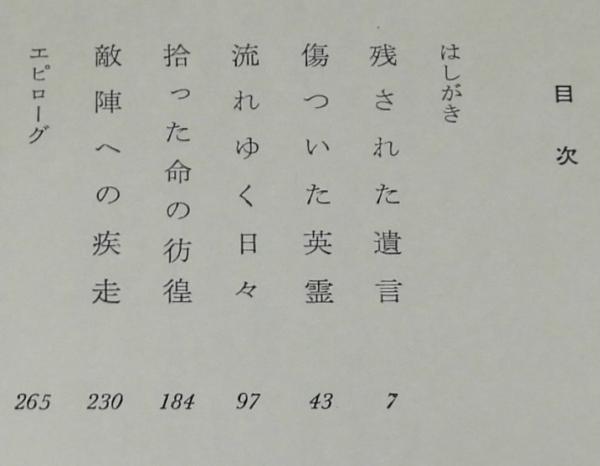 目次
はしがき
残された遺言 7
傷ついた英霊 43
流れゆく日々 97
拾った命の彷徨 184
敵陣への疾走 230
エピローグ 265